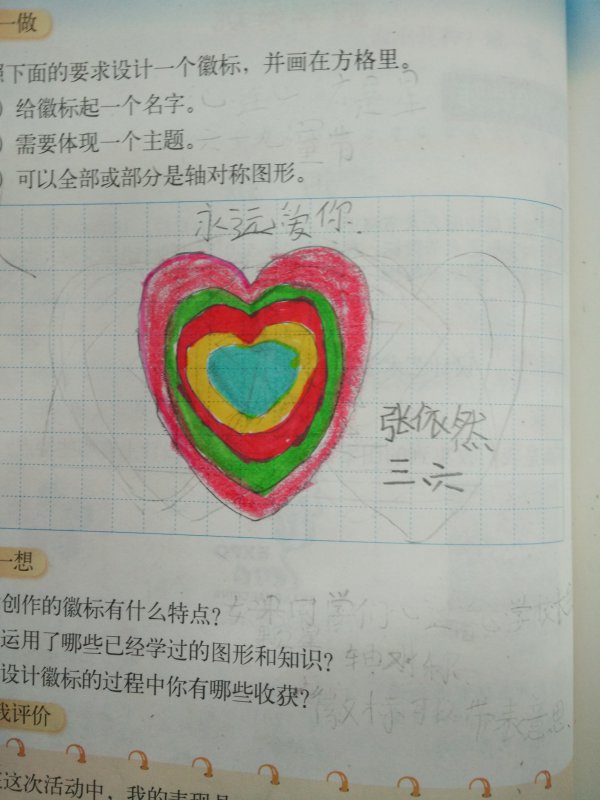 一做
照下面的要求设计一个徽标，并画在方格里。
）给徽标起一个名字。
）需要体现一个主题。
六一儿童节
）可以全部或部分是轴对称图形。
永远爱你.
张依然
三.六
一想
创作的徽标有什么特点？
运用了哪些已经学过的图形和知识？
轴对称
设计徽标的过程中你有哪些收获？
徽标可以带表意思
我评价
在这次活动中，我的表现是